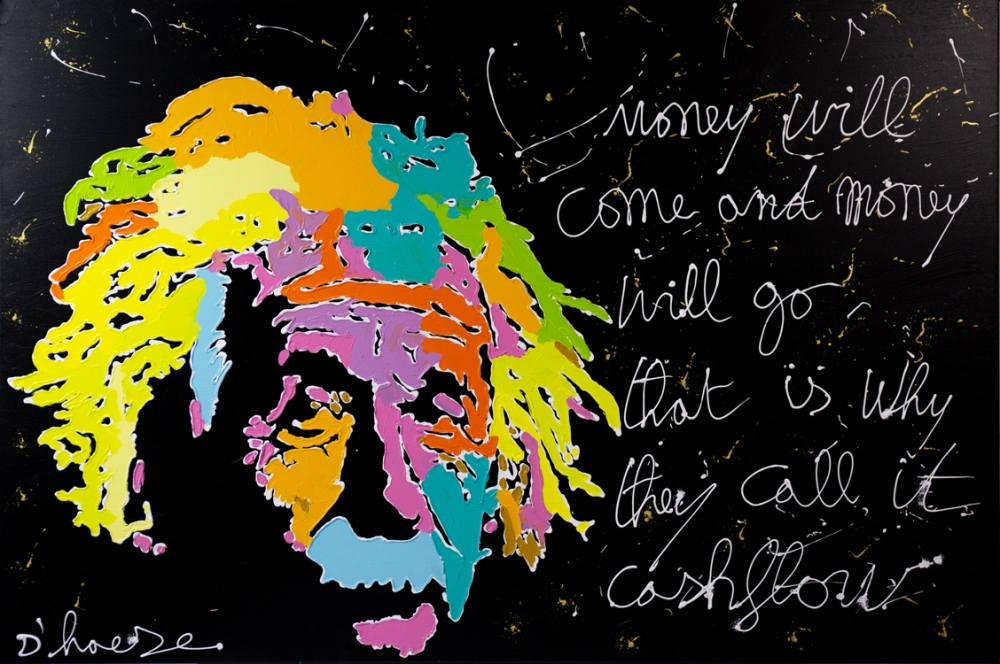 money will
come and money
will go -
that is why
they call it
cashflow
D'haese.